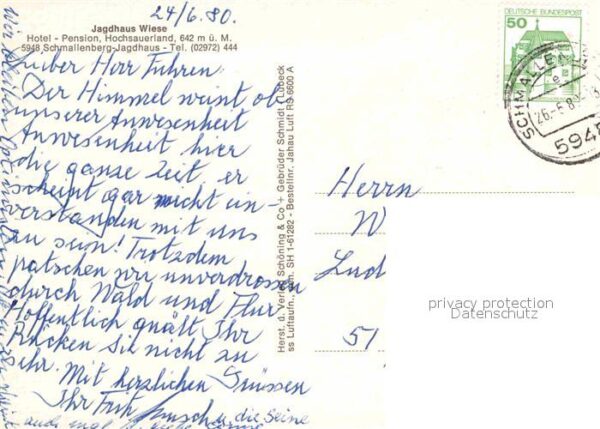 24/6.80.
Jagdhaus Wiese
Hotel - Pension, Hochsauerland, 642 m ü. M.
5948 Schmallenberg-Jagdhaus - Tel. (02972) 444
Lieber Herr Fuhren
Der Himmel weint ob
unserer Anwesenheit
Anwesenheit hier
die ganze Zeit, er
scheint gar nicht ein-
verstanden mit uns
zu sein! Trotzdem
patschen wir unverdrossen
durch Wald und Flur.
Hoffentlich quält Ihr
Rücken Sie nicht zu
sehr. Mit herzlichen Grüssen
Ihr Fritz und die Seine
auch mal
Wir bleiben Optimisten
Herst. u. Verlag Schöning & Co + Gebrüder Schmidt Lübeck
ss Luftaufn., SH 1-61282 - Bestellnr. Jahau Luft RS 6600 A
DEUTSCHE BUNDESPOST
50
SCHMALLENB
e
26.-6.8
5948
Herrn
W
Lud
51
privacy protection
Datenschutz